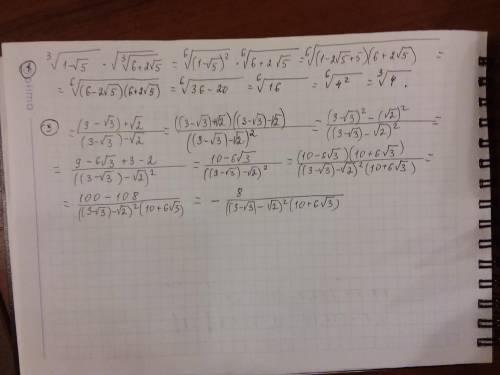 ④ ∛(1-√5) · √(∛(6+2√5)) = ⁶√((1-√5)²) · ⁶√(6+2√5) = ⁶√((1-2√5+5)(6+2√5)) =
= ⁶√((6-2√5)(6+2√5)) = ⁶√(36-20) = ⁶√16 = ⁶√(4²) = ∛4.
⑤ = ((3-√3)+√2)/((3-√3)-√2) = (((3-√3)+√2)((3-√3)-√2))/((3-√3)-√2)² = ((3-√3)²-(√2)²)/((3-√3)-√2)² =
= (9-6√3+3-2)/((3-√3)-√2)² = (10-6√3)/((3-√3)-√2)² = ((10-6√3)(10+6√3))/(((3-√3)-√2)²(10+6√3)) =
= (100-108)/(((3-√3)-√2)²(10+6√3)) = - 8/(((3-√3)-√2)²(10+6√3))